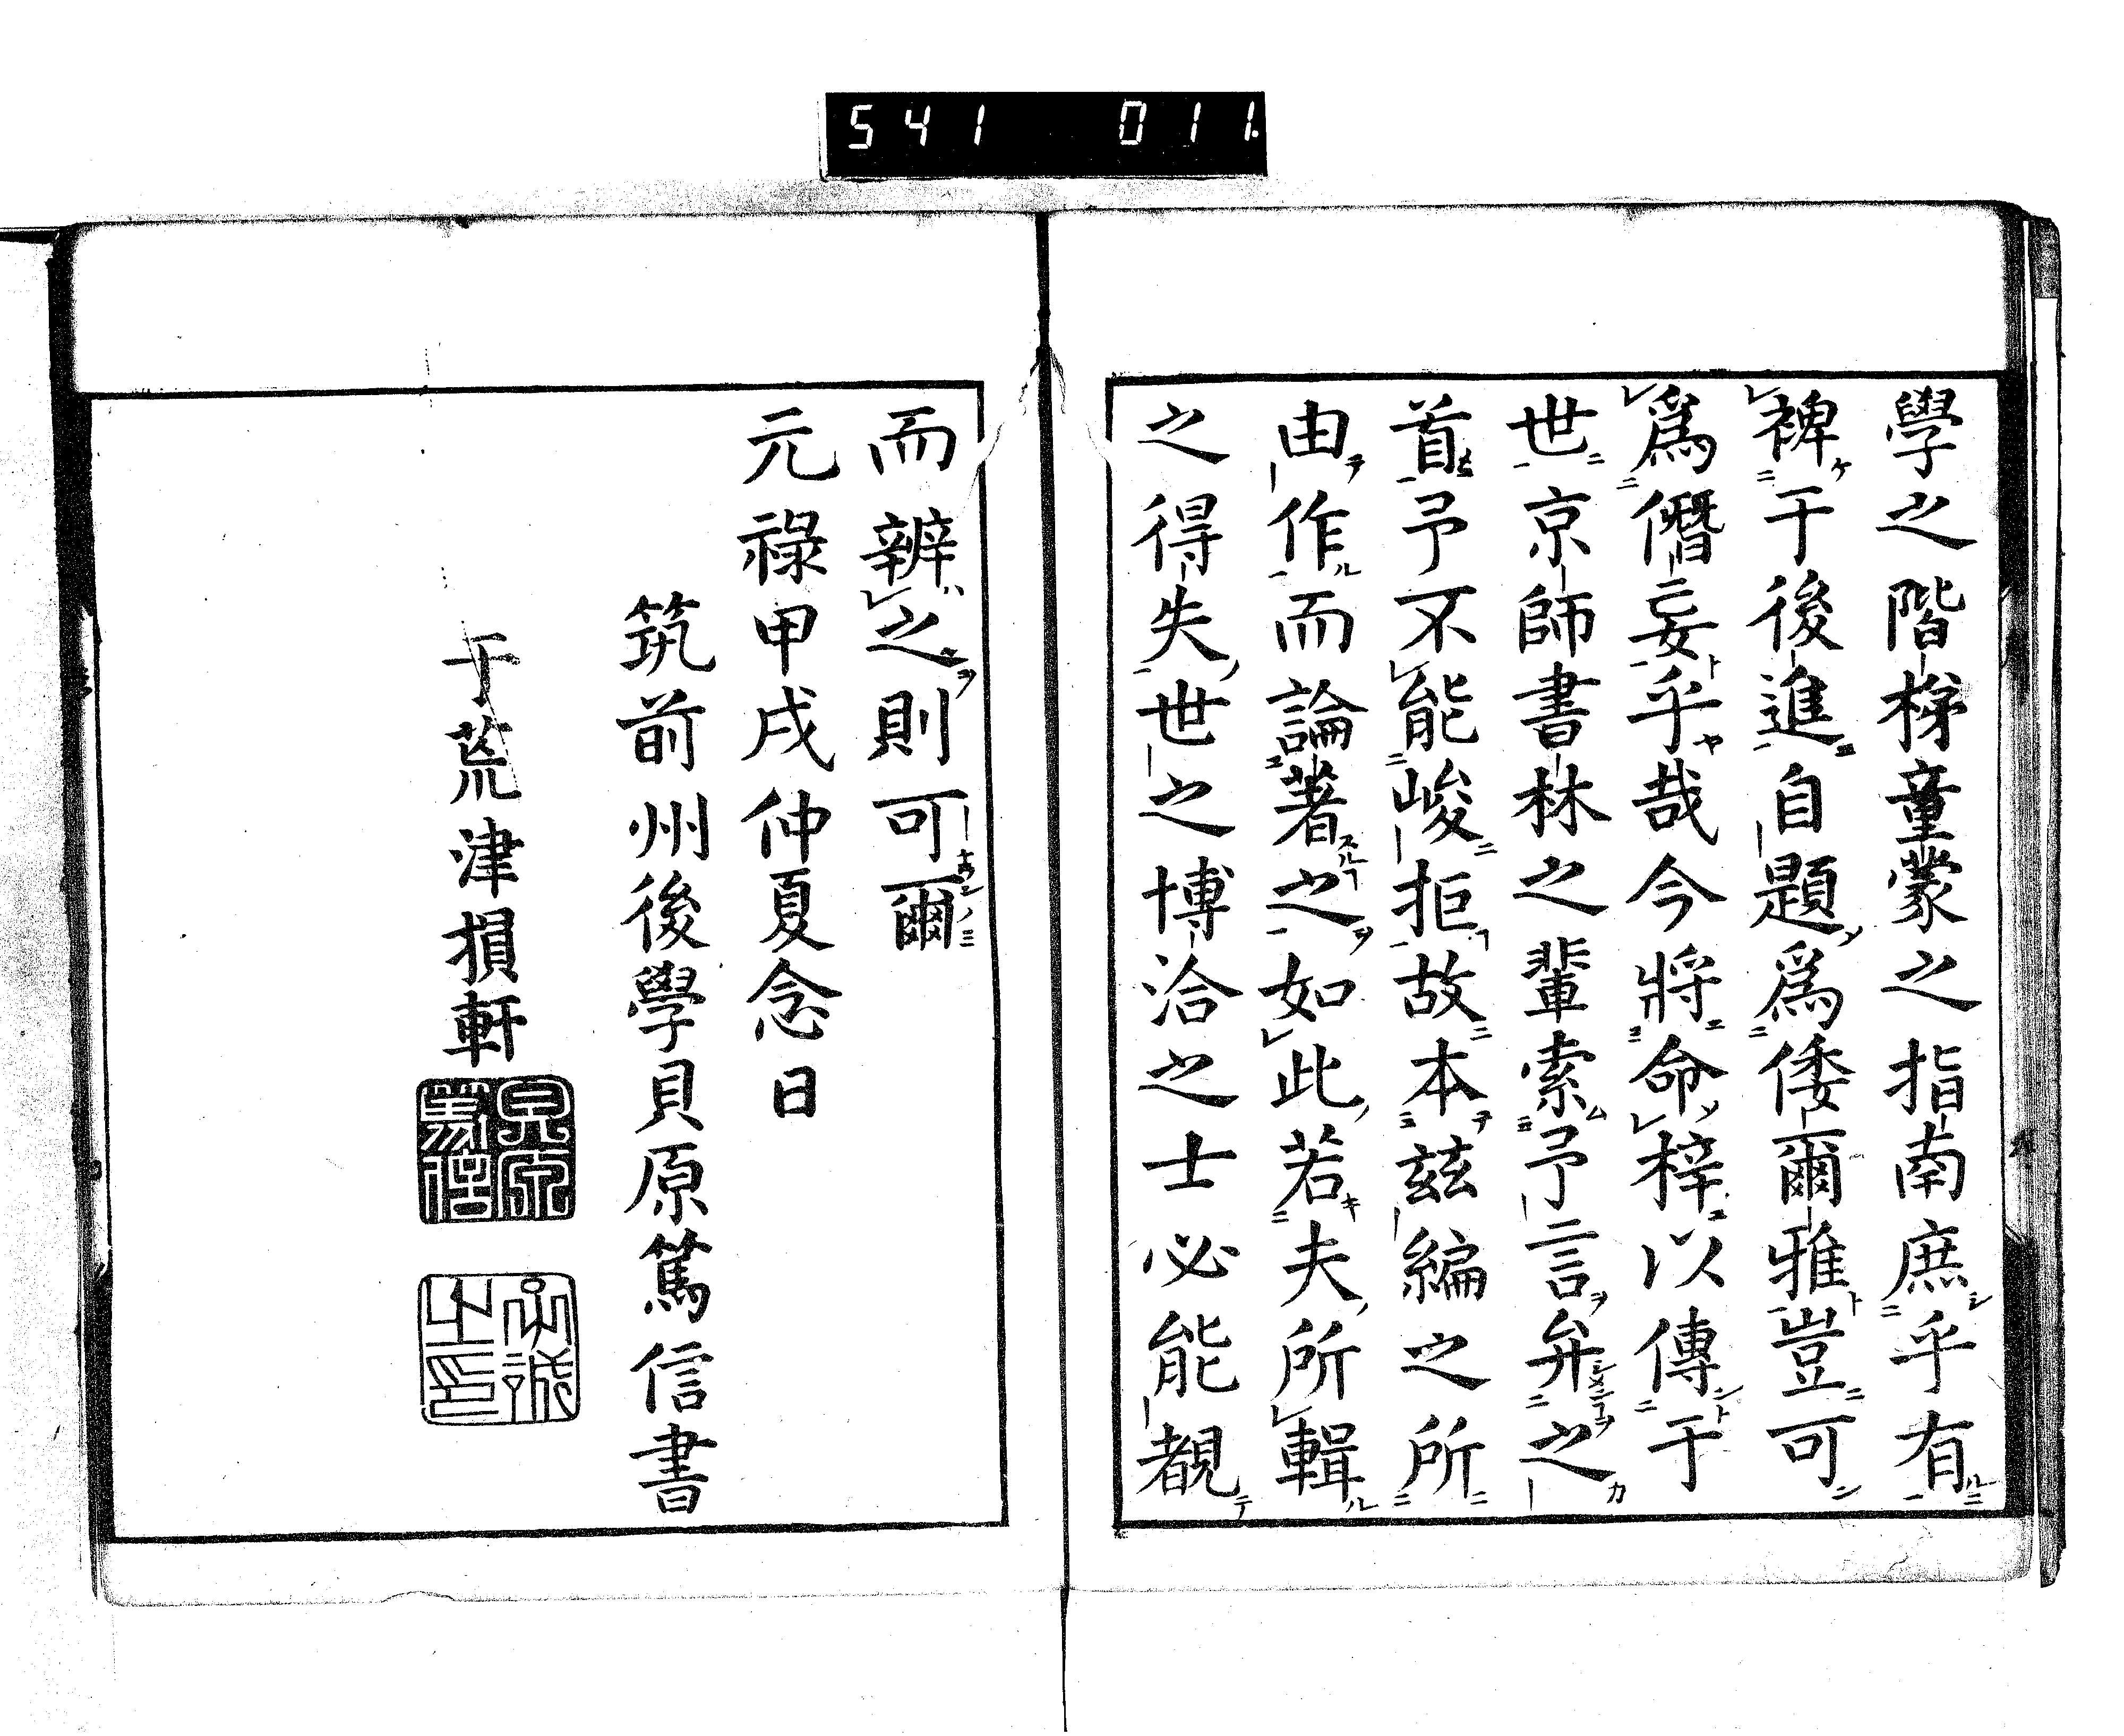 541 011
學之階梯童蒙之指南庶乎有
裨于後進自題爲倭爾雅豈可
爲僭妄乎哉今將命梓以傳于
世京師書林之輩索予言弁之
首予不能峻拒故本茲編之所
由作而論著之如此若夫所輯
之得失世之博洽之士必能覩
而辨之則可爾
元祿甲戌仲夏念日
筑前州後學貝原篤信書
于荒津損軒